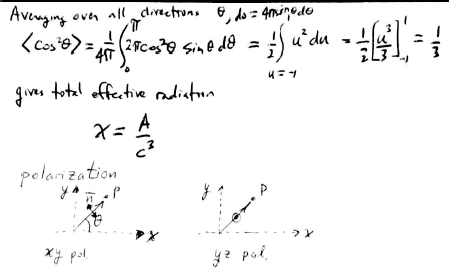 Averaging over all directions θ, dσ = 4π sinθ dθ
⟨cos²θ⟩ = 1/4π ∫₀^π 2π cos²θ sinθ dθ = 1/2 ∫_{u=-1}^{1} u² du = 1/2 [u³/3]_{-1}^{1} = 1/3
gives total effective radiation
χ = A/c³
polarization
y n P θ x
y P x
xy pol.
yz pol.